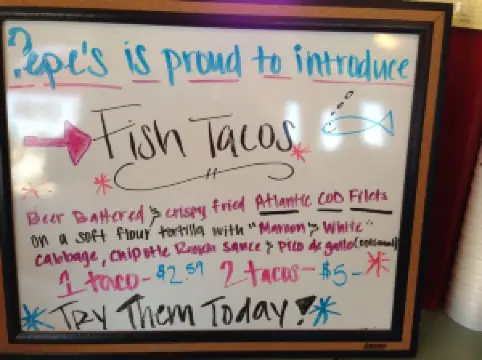 Pepe's is proud to introduce
Fish Tacos
Beer Battered & crispy fried Atlantic Cod Filets
on a soft flour tortilla with "Maroon & White"
cabbage, chipotle Ranch Sauce & Pico de gallo (optional)
1 taco - $2.59 2 tacos - $5 -
Try Them Today!